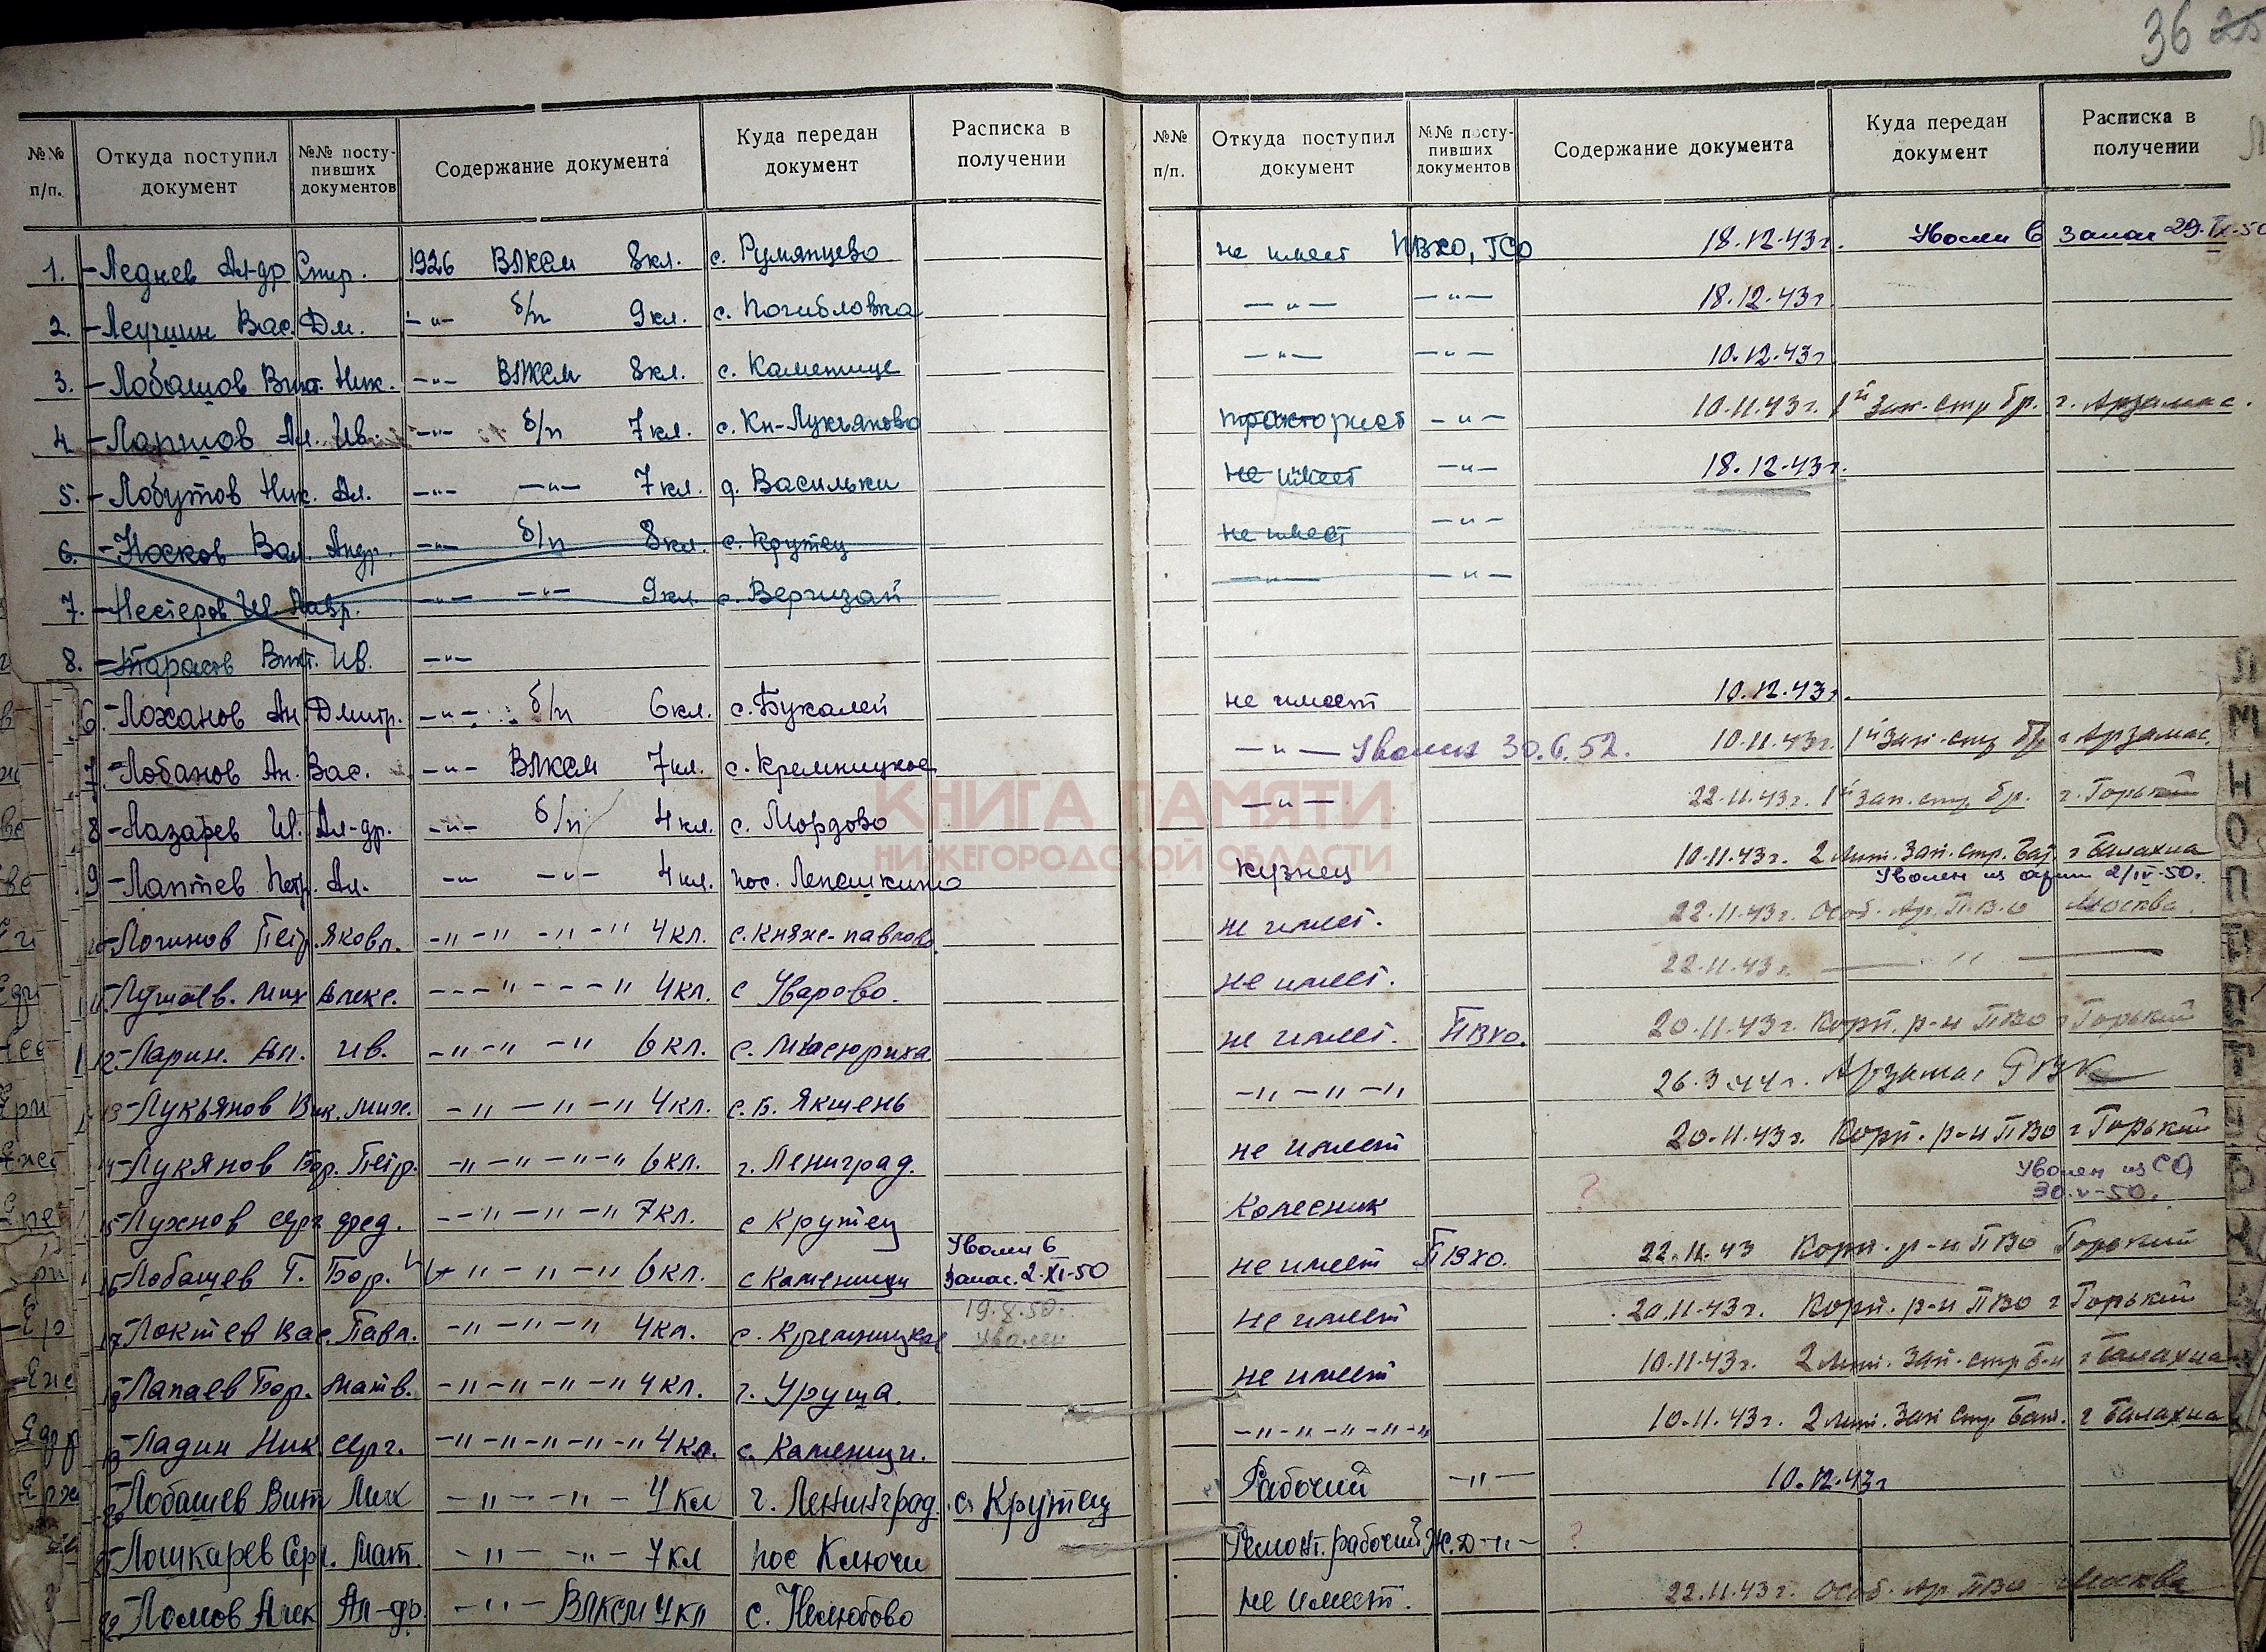 36 25
№№ п/п. Откуда поступил документ №№ посту-пивших документов Содержание документа Куда передан документ Расписка в получении №№ п/п. Откуда поступил документ №№ посту-пивших документов Содержание документа Куда передан документ Расписка в получении
1. -Леднев Ал-др Стр. 1926 ВЛКСМ 8кл. с. Румянцево не имеет ПВХО, ГСО 18.12.43г. Уволен в запас 29.IX.50
2. -Леушин Вас. Дм. -"- б/п 9кл. с. Погибловка -"- -"- 18.12.43г.
3. -Лобашов Викт. Ник. -"- ВЛКСМ 8кл. с. Каменище -"- -"- 10.12.43г
4 -Лапшов Ал. Ив. -"- б/п 7кл. с. Кн-Лукьяново тракторист -"- 10.11.43г. 1й Зап. стр бр. г. Арзамас.
5. -Лобутов Ник. Ал. -"- -"- 7кл. д. Васильки не имеет -"- 18.12.43г.
6. -Носков Вал. Андр. -"- б/п 8кл. с. Крутец не имеет -"-
7. -Нестеров Ив. Лавр. -"- -"- 9кл с. Вергизай -"- -"-
8. -Тарасов Викт. Ив. -"-
6. -Лоханов Ан Дмитр. -"- б/п 6кл. с. Букалей не имеет 10.12.43г.
7. -Лобанов Ан. Вас. -"- ВЛКСМ 7кл. с. Кремницкое -"- Уволен 30.6.52. 10.11.43г. 1й Зап. стр бр г Арзамас.
8 -Лазарев Ив. Ал-др. -"- б/п 4кл. с. Мордово -"- 22.11.43г. 1й зап. стр бр. г. Горький
9 -Лаптев Петр. Ал. -"- -"- 4кл. пос. Лепешкино кузнец 10.11.43г. 2 Зап. стр. бат. г Балахна
Уволен из армии 2/IV-50г.
10 -Логинов Петр. Яковл. -"-"-"-" 4кл. с. Княж-павлово не имеет. 22.11.43г. Особ. Ар. П.В.О Москва
11 Мих Алекс. -"- -" 4кл. с Уварово. не имеет. 22.11.43г. -"-
12. -Ларин. Ал. Ив. -"-"-" 6кл. с. не имеет. ПВХО. 20.11.43г. Корп. р-н ПВО г Горький
13 -Лукьянов Вик. Мих. -"-"-" 4кл. с. Б. Якшень -"-"-" 26.3.44г. Арзамас РВК
14 -Лукянов Бор. Петр. -"-"-"-" 6кл. г. Ленинград. не имеет 20.11.43г. Корп. р-н ПВО г Горький
15 -Лухнов Серг Фед. -"-"-" 7кл. с Крутец Колесник ? Уволен из СА 30.V-50.
16 -Лобашев Г. Бор. -"-"-" 6кл. с Каменищи Уволен в запас. 2.XI-50 не имеет ПВХО. 22.11.43 Корп. р-н ПВО Горький
17 -Локтев Вас. Павл. -"-"-" 4кл. с. Кремницкое 19.8.50. Уволен не имеет 20.11.43г. Корп. р-н ПВО г Горький
18 -Лапаев Бор. Матв. -"-"-"-" 4кл. г. Уруша. не имеет 10.11.43г. 2 Зап. стр б-н г Балахна
19 -Ладин Ник Серг. -"-"-"-"-" 4кл. с. Каменищи. -"-"-"-" 10.11.43г. 2 Зап Стр. Бат. г Балахна
20 -Лобашев Вит Мих -"- -"- 4кл г. Ленинград. с Крутец Рабочий -"- 10.12.43г
21 -Лошкарев Серг. Мат. -"- -"- 4кл пос Ключи Ремонт. рабочий Ж.Д -"- ?
22 -Ломов Алек Ал-др. -"- ВЛКСМ 4кл с. Нелюбово не имеет. 22.11.43г. Особ. Ар ПВО Москва
КНИГА ПАМЯТИ
НИЖЕГОРОДСКОЙ ОБЛАСТИ
Л
М
Н
О
П
Р